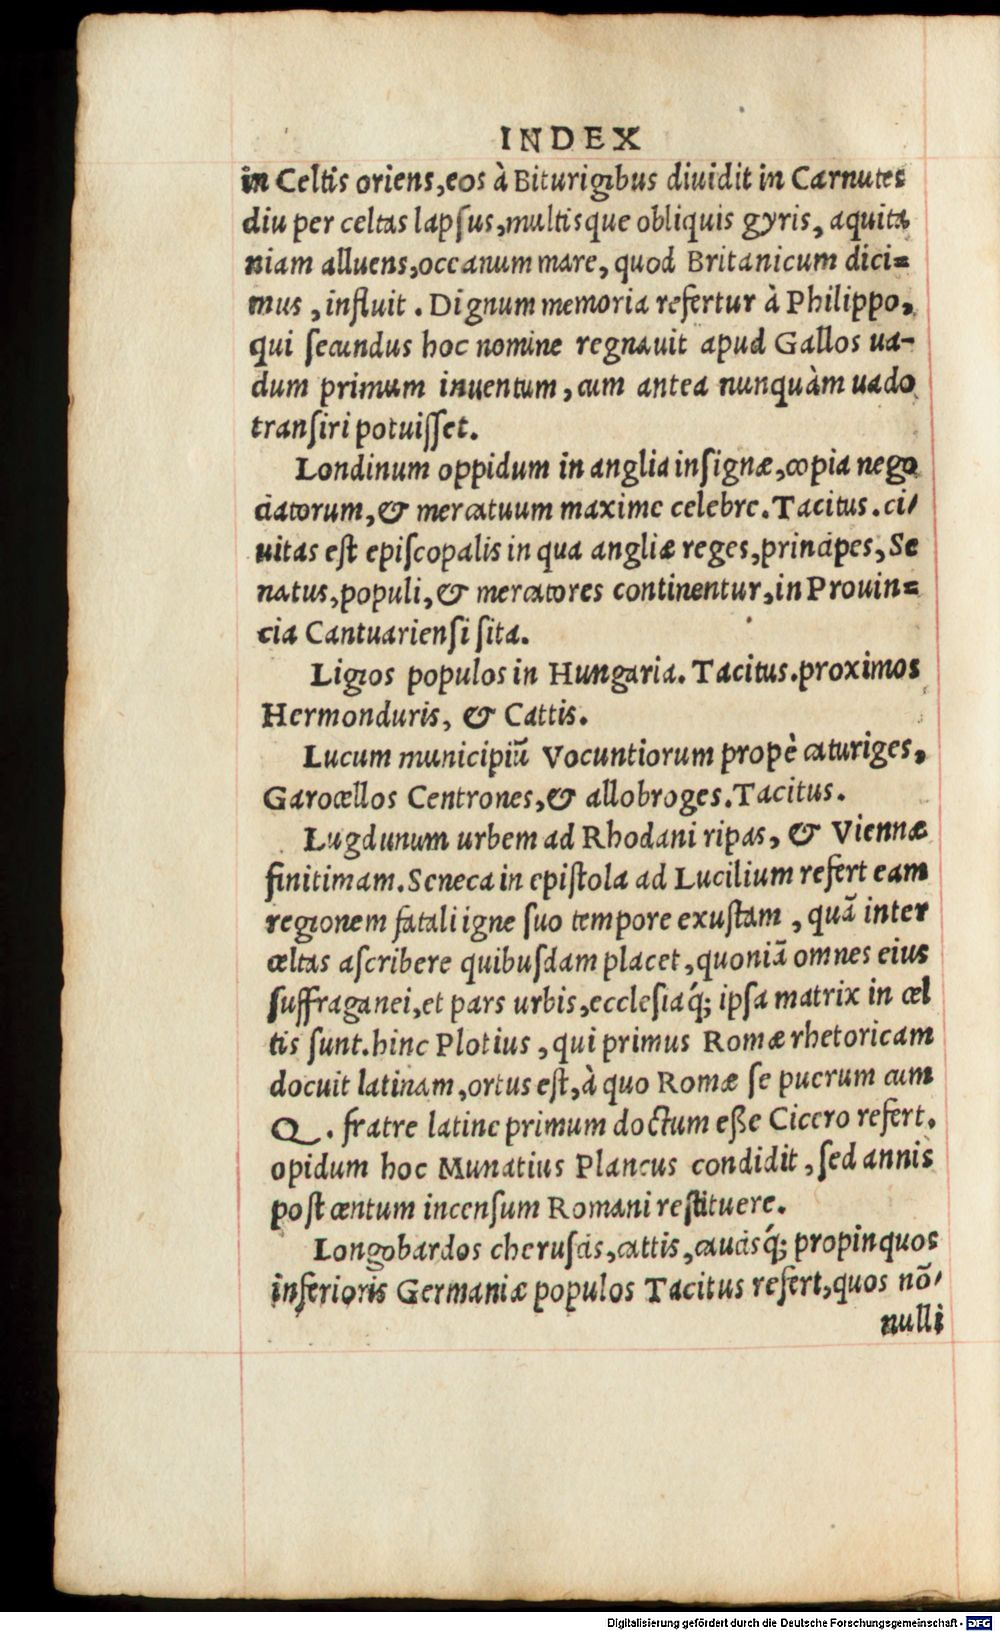 INDEX
in Celtis oriens,eos à Biturigibus diuidit in Carnutes
diu per celtas lapſus,multisque obliquis gyris, aquita
niam alluens,occanum mare, quod Britanicum dici=
mus , influit . Dignum memoria refertur à Philippo,
qui ſecundus hoc nomine regnauit apud Gallos ua-
dum primum inuentum , cum antea nunquàm uado
tranſiri potuiſſet.
Londinum oppidum in anglia inſignæ,copia nego
ciatorum, & mercatuum maxime celebre. Tacitus . ci/
uitas eſt epiſcopalis in qua angliæ reges,principes, Se
natus,populi, & mercatores continentur,in Prouin=
cia Cantuarienſi ſita.
Ligios populos in Hungaria. Tacitus.proximos
Hermonduris, & Cattis.
Lucum municipiū Vocuntiorum propè caturiges,
Garocellos Centrones, & allobroges.Tacitus.
Lugdunum urbem ad Rhodani ripas, & Viennæ
finitimam.Seneca in epiſtola ad Lucilium refert eam
regionem fatali igne ſuo tempore exuſtam , quā inter
celtas aſcribere quibuſdam placet,quoniā omnes eius
ſuffraganei,et pars urbis,eccleſiaq́; ipſa matrix in cel
tis ſunt.hinc Plotius , qui primus Romæ rhetoricam
docuit latinam,ortus eſt,à quo Romæ ſe puerum cum
Q. fratre latine primum doctum eße Cicero refert.
opidum hoc Munatius Plancus condidit , ſed annis
poſt centum incenſum Romani reſtituere.
Longobardos cheruſcis,cattis,caucisq́; propinquos
inferioris Germaniæ populos Tacitus refert,quos nō/
nulli
Digitalisierung gefördert durch die Deutsche Forschungsgemeinschaft - DFG